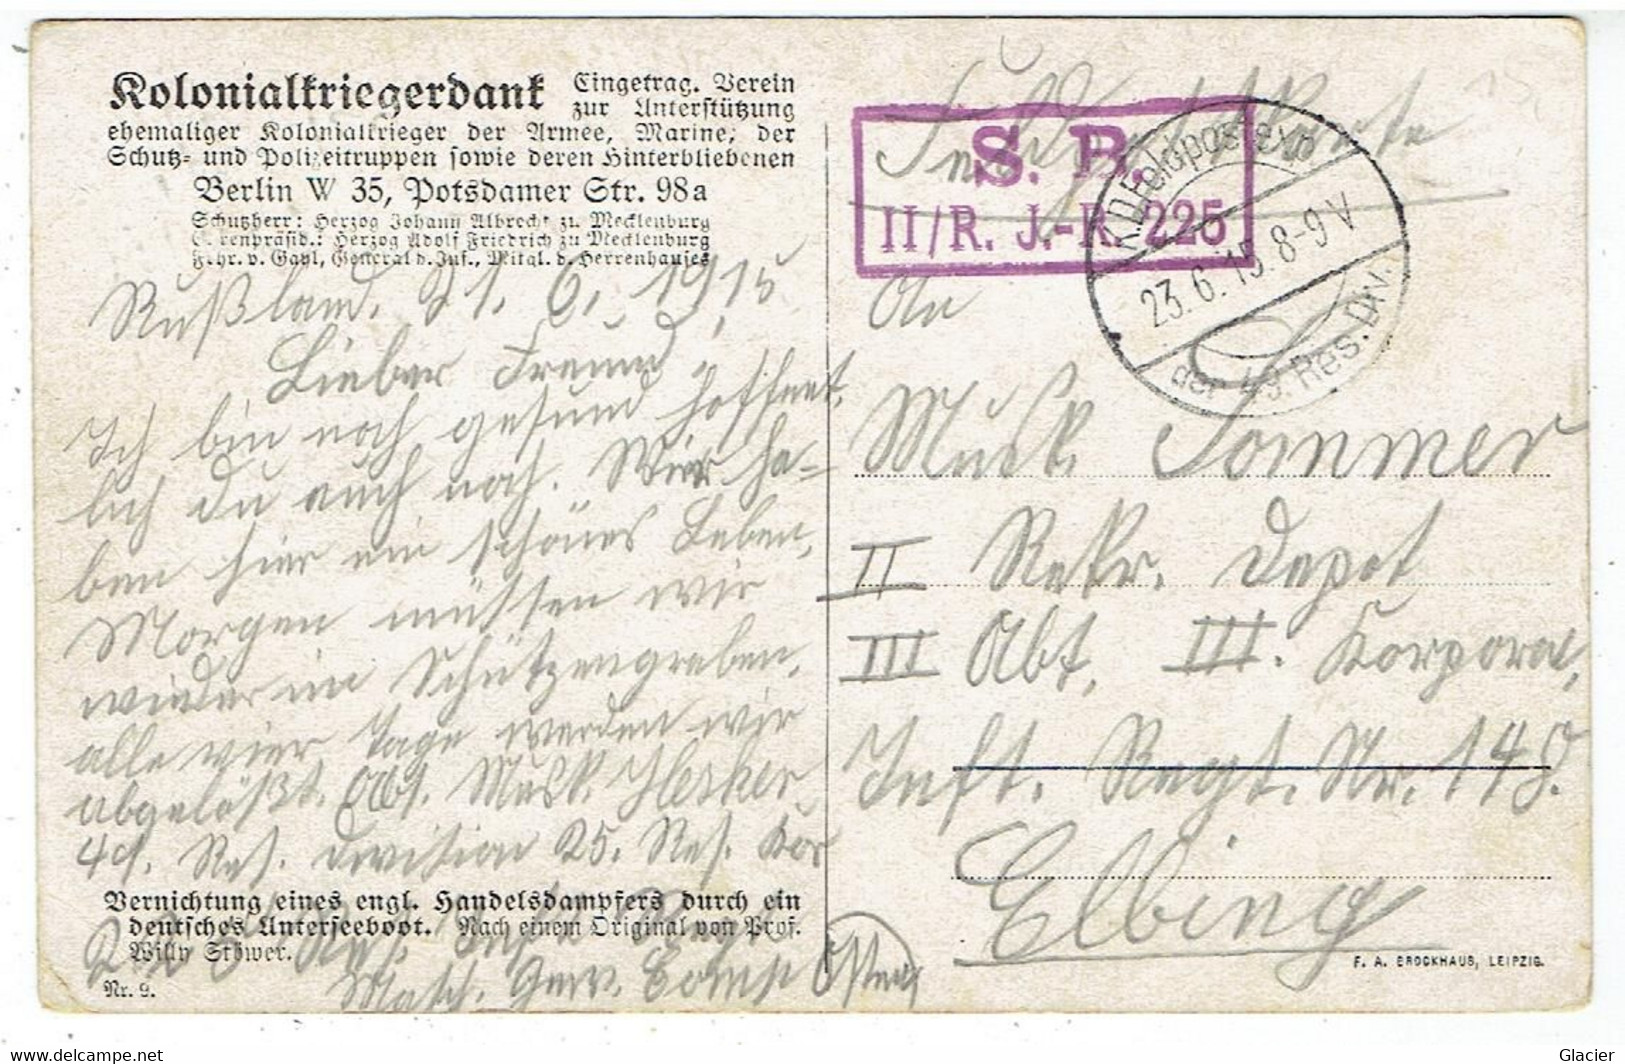 Kolonialkriegerdank Eingetrag. Verein
zur Unterstützung
ehemaliger Kolonialkrieger der Armee, Marine, der
Schutz- und Polizeitruppen sowie deren Hinterbliebenen
Berlin W 35, Potsdamer Str. 98a
Schutzherr: Herzog Johann Albrecht zu Mecklenburg
Ehrenpräsid.: Herzog Adolf Friedrich zu Mecklenburg
Frhr. v. Gayl, General d. Inf., Mitgl. d. Herrenhauses
Rußland, 21. 6. 1915
Lieber Freund,
Ich bin noch gesund hoffent-
lich du auch noch. Wier ha-
ben hier ein schönes Leben,
Morgen müssen wir
wieder im Schützengraben,
alle vier Tage werden wir
abgelößt. Abs. Musk.
49. Res. Division 25. Res. Kor
225 Res. Inft. Regt
Masch. Gew. Comp Osten
Vernichtung eines engl. Handelsdampfers durch ein
deutsches Unterseeboot. Nach einem Original von Prof.
Willy Stöwer.
Nr. 9.
Feldpostkarte
S. B.
II/R. J.-R. 225
K.D.Feldpostexp
23.6.15 8-9 V
der 49. Res. Div.
An
Musk. Sommer
II Rekr. Depot
III Abt. III. Korporal,
Inft. Regt. Nr. 148.
Elbing
F. A. BROCKHAUS, LEIPZIG.
www.delcampe.net
Glacier